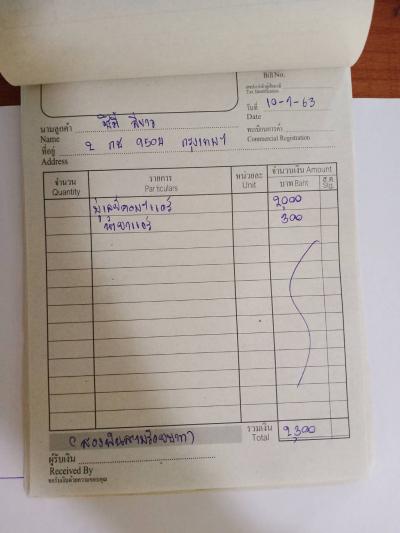 Bill No.
เลขประจำตัวผู้เสียภาษี
Tax Identification
วันที่ 10-1-63
Date
นามลูกค้า สีขาว
Name
ทะเบียนการค้า
Commercial Registration
ที่อยู่ 2 กช 9504 กรุงเทพฯ
Address
จำนวน รายการ หน่วยละ จำนวนเงิน Amount
Quantity Particulars Unit บาท Baht ส.ต. Stg.
มู่เลย์คอมฯแอร์ 2,000
น้ำยาแอร์ 300
(สองพันสามร้อยบาท) รวมเงิน 2,300
Total
ผู้รับเงิน
Received By
ขอรับเงินด้วยความขอบคุณ